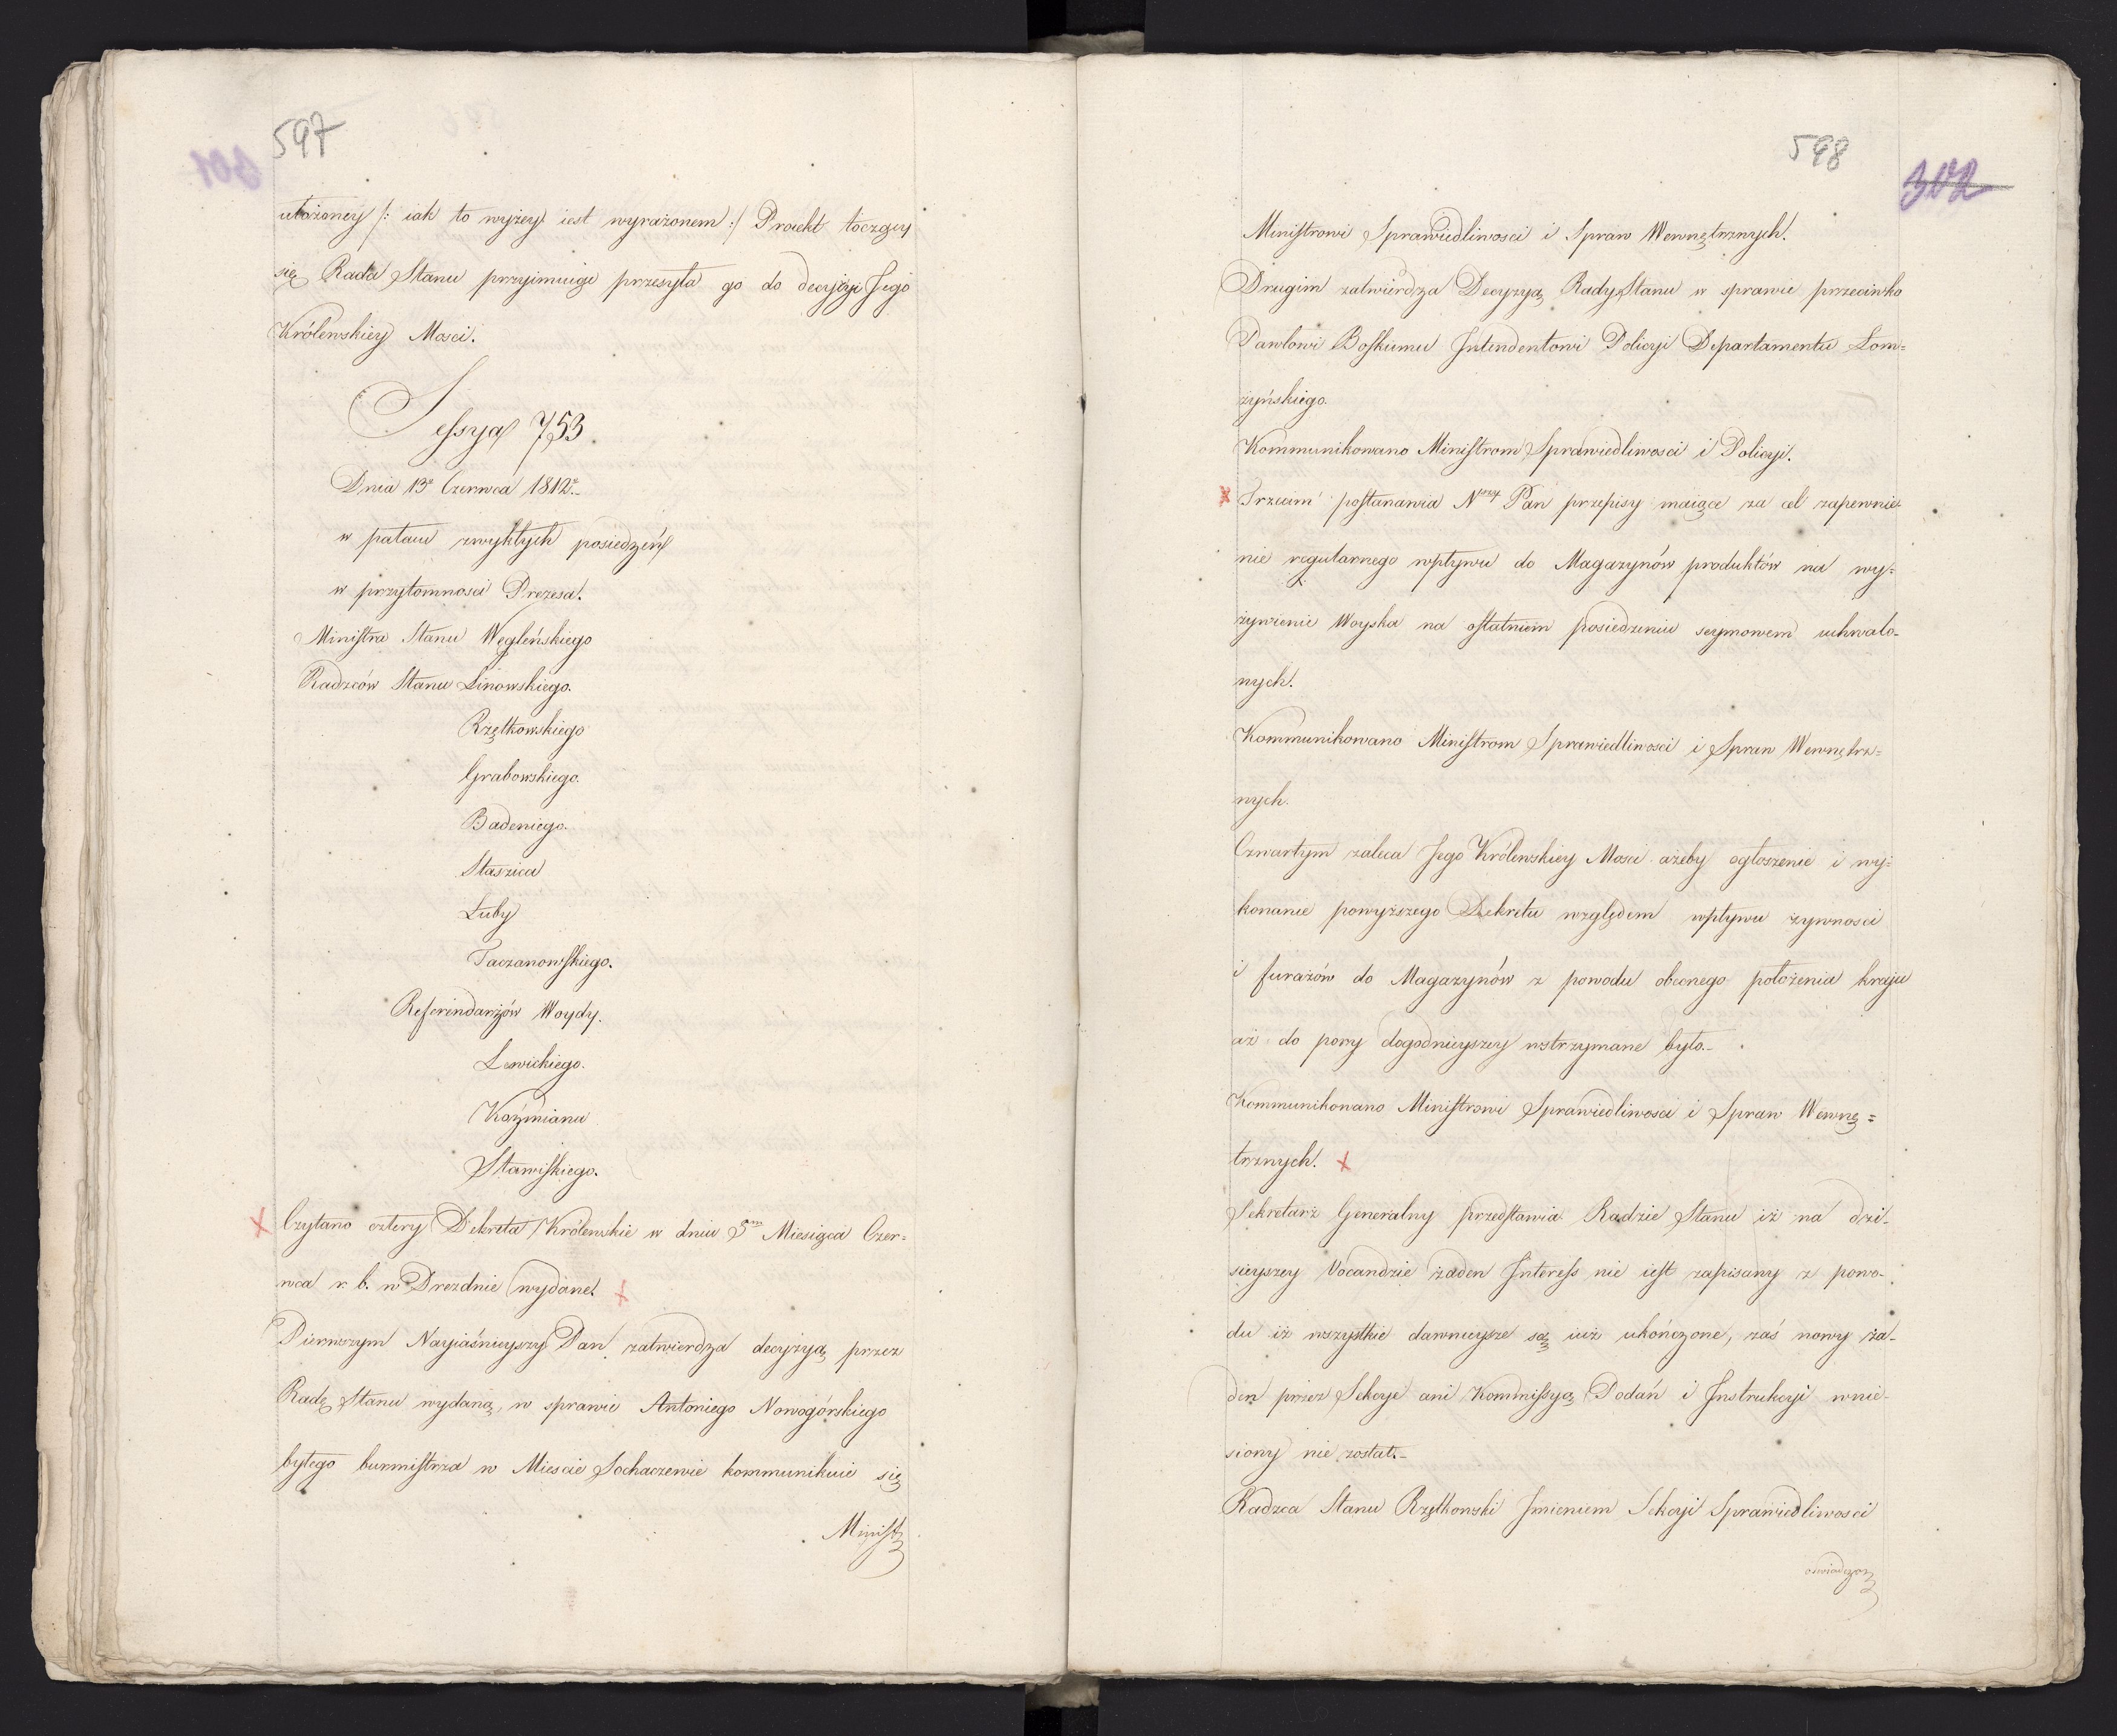 597
ułożoney /: iak to wyżey iest wyrażonem :/ Proiekt toczący
się Rada Stanu przyimuiąc przesyła go do decyzyi Jego
Królewskiey Mosci.
Sessya 753.
Dnia 13º Czerwca 1812º
w pałacu zwykłych posiedzeń
w przytomnosci Prezesa.
Ministra Stanu Węgleńskiego
Radzców Stanu Linowskiego.
Rzętkowskiego
Grabowskiego.
Badeniego.
Staszica
Łuby
Taczanowskiego.
Referendarzów Woydy.
Lewickiego.
Koźmiana
Stawiskiego.
Czytano cztery Dekreta Królewskie w dniu 5m Miesiąca Czer=
wca r. b. w Dreznie wydane.
Pierwszym Nayiaśnieyszy Pan zatwierdza decyzyą przez
Radę Stanu wydaną, w sprawie Antoniego Nowogórskiego
byłego burmistrza w Miescie Sochaczewie kommunikuie się
Minist
598
302
Ministrowi Sprawiedliwosci i Spraw Wewnętrznych.
Drugim zatwierdza Decyzyą Rady Stanu w sprawie przeciwko
Pawłowi Boskiemu Intendentowi Policyi Departamentu Łom=
żyńskiego.
Kommunikowano Ministrom Sprawiedliwosci i Policyi.
Trzecim postanawia Nay Pan przepisy maiące za cel zapewnie-
nie regularnego wpływu do Magazynów produktów na wy=
żywienie Woyska na ostatniem posiedzeniu seymowem uchwalo-
nych.
Kommunikowano Ministrom Sprawiedliwosci i Spraw Wewnętrz=
nych.
Czwartym zaleca Jego Królewskiey Mosci ażeby ogłoszenie i wy=
konanie powyższego Dekretu względem wpływu żywnosci
i furażów do Magazynów z powodu obecnego położenia kraju
aż do pory dogodnieyszey wstrzymane było.
Kommunikowano Ministrowi Sprawiedliwosci i Spraw Wewnę=
trznych.
Sekretarz Generalny przedstawia Radzie Stanu iż na dzi-
sieyszey Vocandzie żaden Interess nie iest zapisany z powo-
du iż wszystkie dawnieysze są iuż ukończone, zaś nowy ża-
den przez Sekcye ani Kommissyą Podań i Instrukcyi wnie-
siony nie został.
Radzca Stanu Rzętkowski Imieniem Sekcyi Sprawiedliwosci